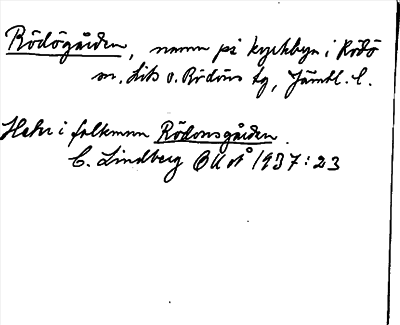 Rödögården, namn på kyrkbyn i Rödö
sn, Lits o. Rödöns tg, Jämtl. l.
Heter i folkmun Rödönsgården.
C. Lindberg OUÅ 1937:23